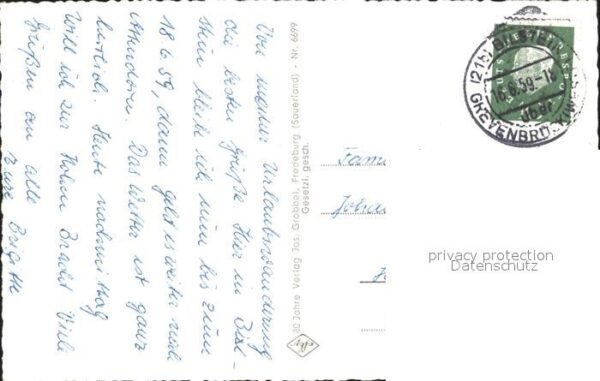 Von meiner Urlaubswanderung
die besten Grüße. Hier in Bil-
stein bleibe ich nun bis zum
18.6.59, dann geht es weiter nach
Attendorn. Das Wetter ist ganz
herrlich. Heute nachmittag
will ich zur Hohen Bracht. Viele
Grüßen an alle
Eure Brigitte
80 Jahre Verlag Jos. Grobbel, Fredeburg (Sauerland) · Nr. 6699
Gesetzl. gesch.
Fami
Johan
(21b) BILSTEIN
16.6.59.-18
über
GREVENBRÜCK
privacy protection
Datenschutz